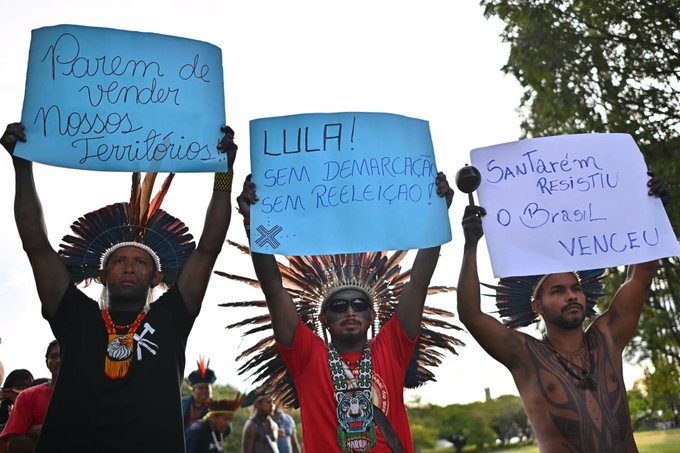 Parem de
vender
Nossos
Territórios!
LULA!
SEM DEMARCAÇÃO
SEM REELEIÇAO!
Santarém
RESISTIU
O BRASIL
VENCEU